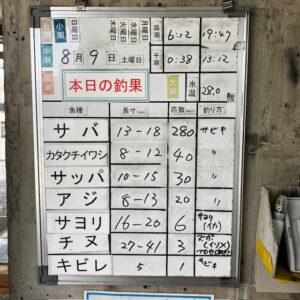 小潮
中潮
日曜日
月曜日
火曜日
水曜日
木曜日
金曜日
8月9日 土曜日
満潮 6:12 19:47
干潮 0:38 13:12
本日の釣果
大潮
水温 28.0 度
魚種 長寸(cm) 匹数(匹) 釣り方
サバ 13-18 280 サビキ
カタクチイワシ 8-12 40 〃
サッパ 10-15 30 〃
アジ 8-13 20 〃
サヨリ 16-20 6 サヨリ
チヌ 27-41 3
キビレ 5 1 サビキ